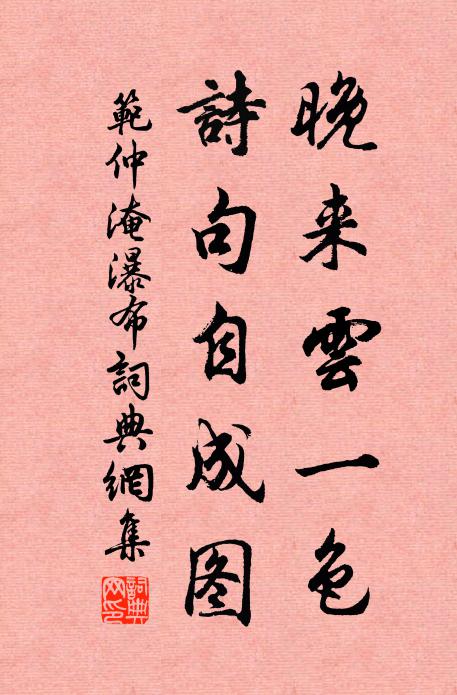 晚来雲一色
詩句自成图
範仲淹瀑布詞典網集
詞典网印